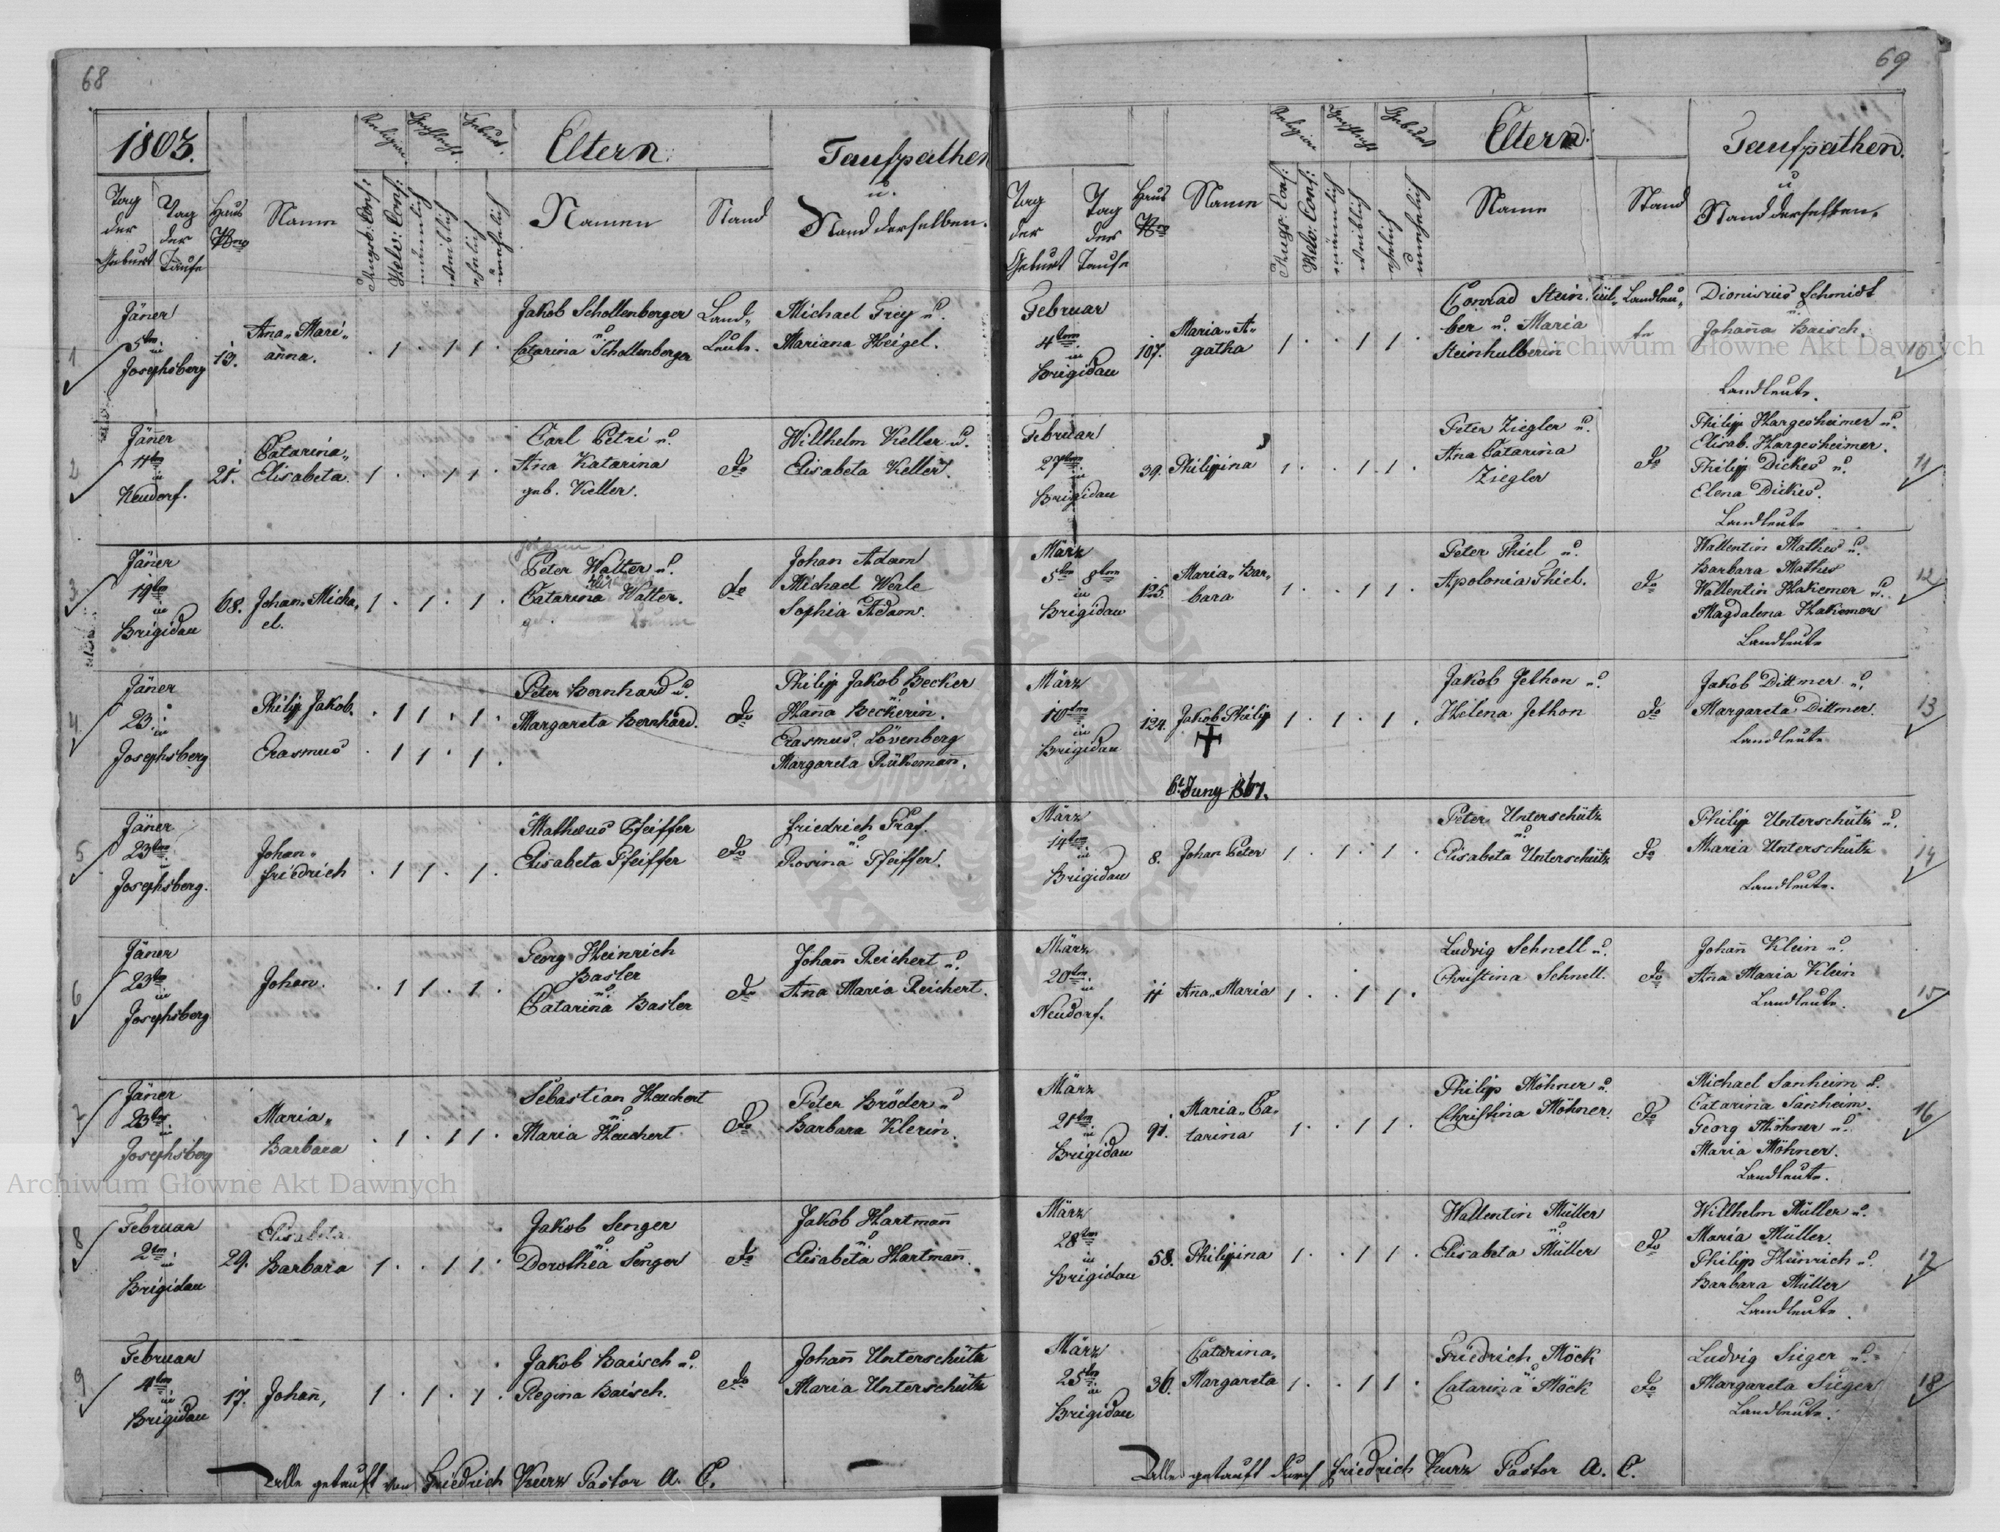 68
1803.
Religion.
Geschlecht.
Geburt.
Eltern:
Taufpathen
u.
Stand derselben.
Tag der Geburt
Tag der Taufe
Haus Nro
Name
Augsb: Conf:
Helv: Conf:
männlich
weiblich
ehelich
unehelich
Namen
Stand
1
Jäner
5tn
in
Josephsberg
13.
Ana„ Mari„
anna.
. 1 . 1 1 .
Jakob Schollenberger
u
Catarina Schollenberger
Land„
Leute.
Michael Frey u.
Mariana Heigel.
2
Jäner
11tn
in
Neudorf.
21.
Catarina„
Elisabeta.
1 . . 1 1 .
Carl Petri u.
Ana Katarina
geb. Keller.
do
Willhelm Keller u.
Elisabeta Keller.
3
Jäner
19tn
in
Brigidau
68.
Johan„ Micha„
el.
1 . 1 . 1 .
Johann
Peter Walter u.
Catarina Walter.
do
Johan Adam
Michael Werle
Sophia Adam.
4
Jäner
23.
in
Josephsberg
Philip Jakob.
Erasmus
. 1 1 . 1 .
. 1 1 . 1 .
Peter Bernhard u.
Margareta Bernhard.
do
Philip Jakob Becker
u
Hanna Beckerin.
Erasmus Lövenberg
Margareta Rükemann.
5
Jäner
23tn
in
Josephsberg.
Johan„
friedrich
. 1 1 . 1 .
Matheus Pfeiffer
Elisabeta Pfeiffer
do
friedrich Graf.
u
Rosina Pfeiffer.
6
Jäner
23tn
in
Josephsberg
Johan.
. 1 1 . 1 .
Georg Heinrich
Basler
u
Catarina Basler
do
Johañ Reichert u.
Ana Maria Reichert.
7
Jäner
23tn
in
Josephsberg
Maria„
Barbara
. 1 . 1 1 .
Sebastian Heuchert
u
Maria Heuchert
do
Peter Bröder u
Barbara Klerin.
8
Februar
2tn
in
Brigidau
29.
Elisabeta
Barbara
1 . . 1 1 .
Jakob Senger
u
Dorothea Senger
do
Jakob Hartmañ
u
Elisabeta Hartmañ.
9
Februar
4tn
in
Brigidau
17.
Johañ,
1 . 1 . 1 .
Jakob Baisch u.
Regina Baisch.
do
Johañ Unterschütz
Maria Unterschütz
Alle getauft von Friedrich Kurz Pastor A. C.
69
Religion
Geschlecht
Geburt
Eltern:
Taufpathen.
u
Stand derselben.
Tag der Geburt
Tag der Taufe
Haus Nro
Name
Augs: Conf:
Helv: Conf:
männlich
weiblich
ehelich
unehelich
Name
Stand
Februar
4tn
in
Brigidau
107.
Maria„ A„
gatha
1 . . 1 1 .
Conrad Steinhül„
ber u. Maria
Steinhulberin
Landleu„
te
Dionisius Schmidt
u
Johaña Baisch.
Landleute.
10
Februar
27tn
in
Brigidau
39.
Philippina
1 . . 1 1 .
Peter Ziegler u.
Ana Catarina
Ziegler
do
Philip Hargesheimer u.
Elisab. Hargesheimer.
Philip Dickes u.
Elena Dickes.
Landleute
11
März
5tn 8tn
in
Brigidau
125.
Maria„ Bar„
bara
1 . . 1 1 .
Peter Thiel u.
Apolonia Thiel.
do
Wallentin Mathes u.
Barbara Mathes
Wallentin Hakemer u.
Magdalena Hakemer
Landleute
12
März
10tn
in
Brigidau
124.
Jakob Philip
6t Juny 867.
1 . 1 . 1 .
Jakob Jethon u.
Helena Jethon
do
Jakob Dittmer u.
Margareta Dittmer.
Landleute
13
März
14tn
in
Brigidau
8.
Johan Peter
1 . 1 . 1 .
Peter Unterschütz
u
Elisabeta Unterschütz
do
Philip Unterschütz u.
Maria Unterschütz
Landleute.
14
März
20tn
in
Neudorf.
11
Ana„ Maria
1 . . 1 1 .
Ludvig Schnell u.
Christina Schnell.
do
Johañ Klein u.
Aña Maria Klein
Landleute.
15
März
21tn
in
Brigidau
91.
Maria„ Ca„
tarina
1 . . 1 1 .
Philip Möhner u.
Christina Möhner.
do
Michael Sanheim u.
Catarina Sanheim.
Georg Möhner u.
Maria Möhner.
Landleute.
16
März
28tn
in
Brigidau
58.
Philippina
1 . . 1 1 .
Wallentin Müller
u
Elisabeta Müller
do
Willhelm Müller u.
Maria Müller.
Philipp Hünrich u.
Barbara Müller
Landleute.
17
März
25tn
in
Brigidau
36.
Catarina„
Margareta
1 . . 1 1 .
Friedrich Möck
u
Catarina Möck
do
Ludvig Sieger u.
Margareta Sieger
Landleute.
18
Alle getauft durch friedrich Kurz Pastor A. C.
Archiwum Główne Akt Dawnych
Archiwum Główne Akt Dawnych